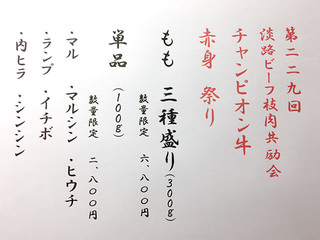 第二二九回
淡路ビーフ枝肉共励会
チャンピオン牛
赤身 祭り
もも 三種盛り(300g)
数量限定 六、八〇〇円
単品(100g)
数量限定 二、八〇〇円
・マル ・マルシン ・ヒウチ
・ランプ ・イチボ
・内ヒラ ・シンシン